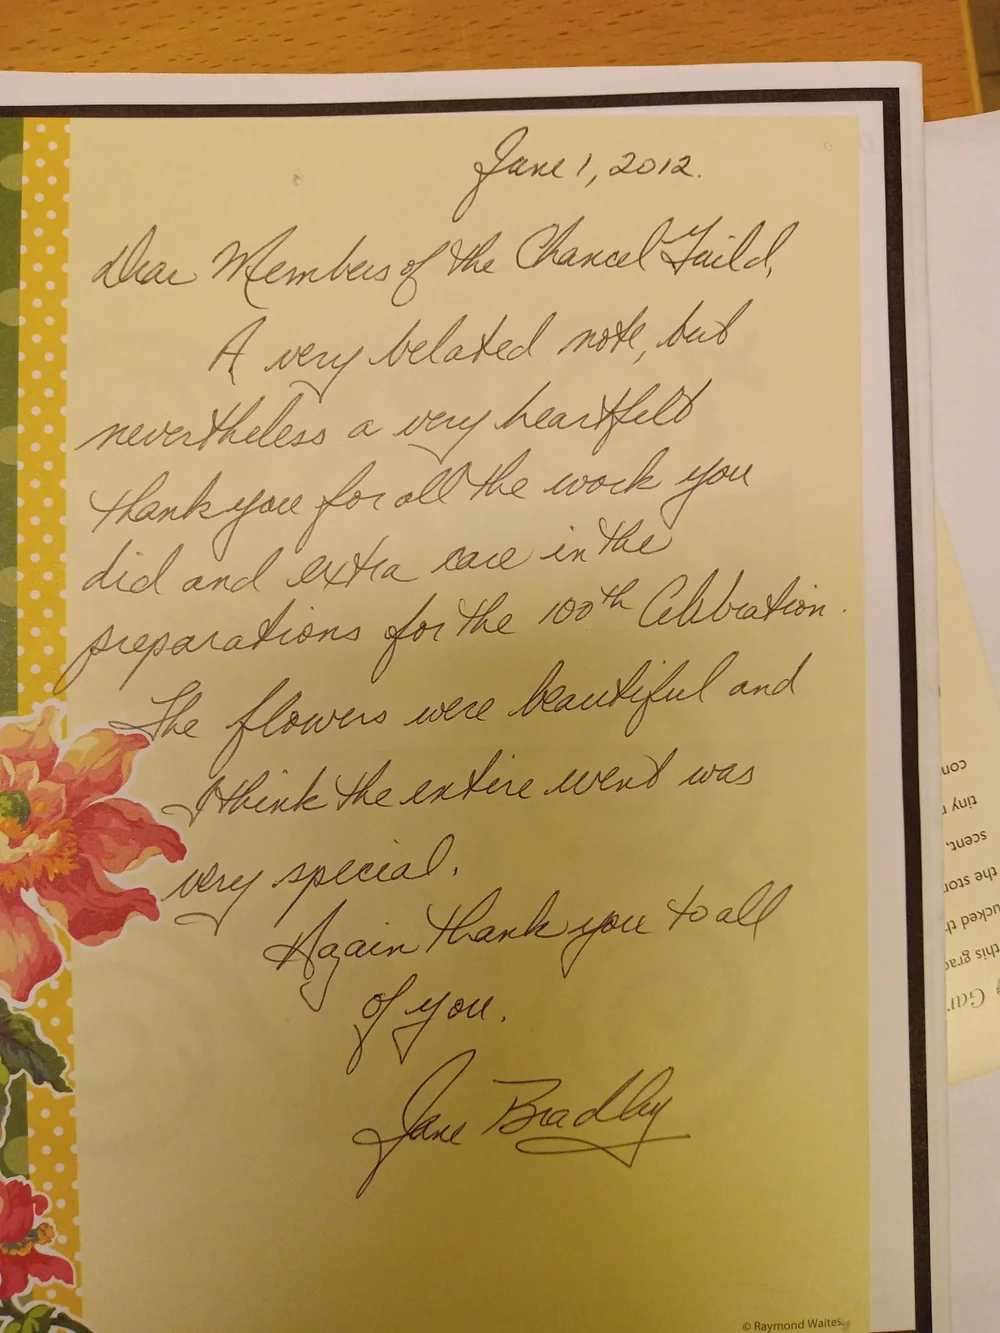 June 1, 2012.
Dear Members of the Chancel Guild,
A very belated note, but
nevertheless a very heartfelt
thank you for all the work you
did and extra care in the
preparations for the 100th Celebration.
The flowers were beautiful and
I think the entire event was
very special.
Again thank you to all
of you.
Jane Bradley
© Raymond Waites
Gar
this grac
ucked th
the stor
scent,
tiny
con